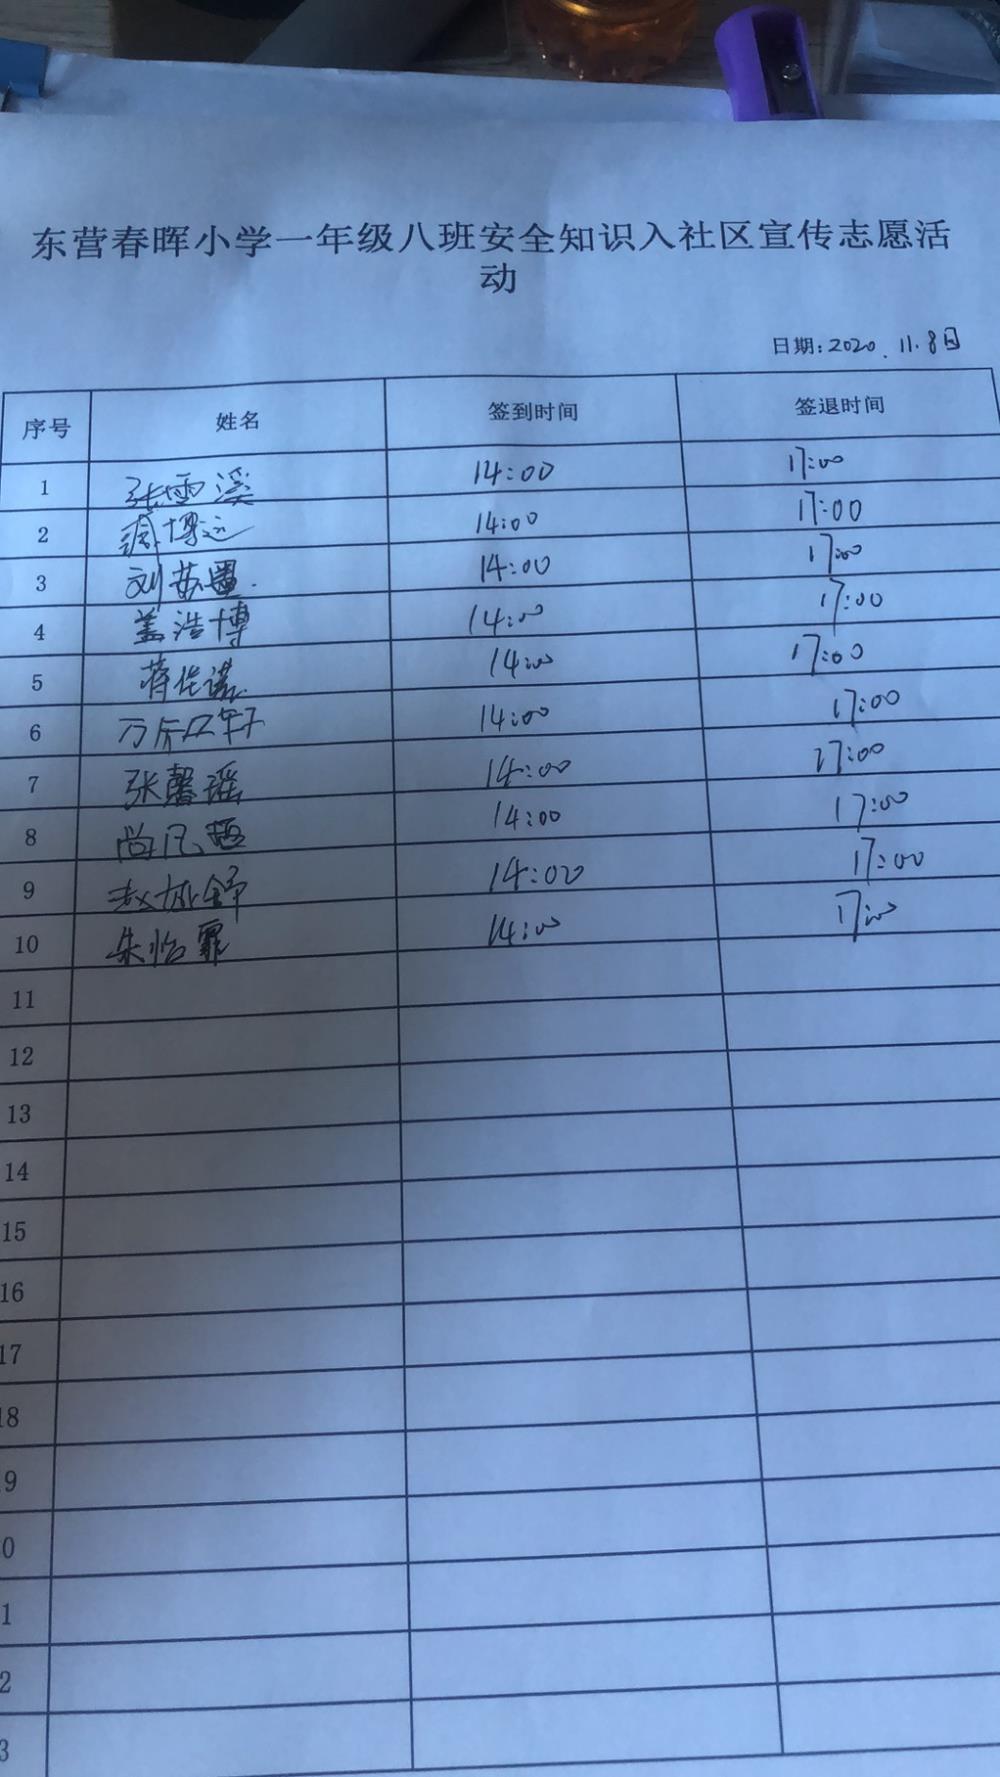 东营春晖小学一年级八班安全知识入社区宣传志愿活
动
日期:2020.11.8日
序号 姓名 签到时间 签退时间
1 张雪溪 14:00 17:00
2 博远 14:00 17:00
3 刘 14:00 17:00
4 盖浩博 14:00 17:00
5 蒋佳诺 14:00 17:00
6 万 轩 14:00 17:00
7 张馨瑶 14:00 17:00
8 尚凡 14:00 17:00
9 赵 14:00 17:00
10 朱怡霏 14:00 17:00
11
12
13
14
15
16
17
18
9
0
1
2
3